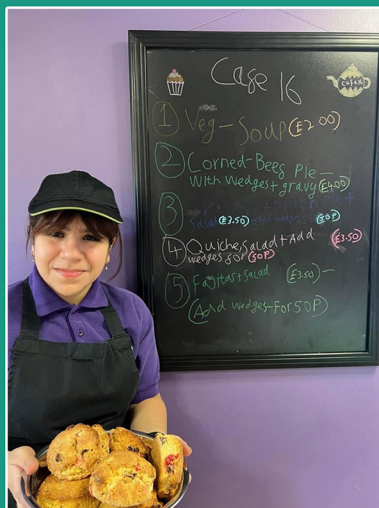 Cafe 16
① Veg-Soup (£2.00)
② Corned-Beef Pie-
with wedges + gravy (£4.00)
③
Salad (£3.50) (50P)
④ Quiche, Salad + Add (£3.50)
wedges 50P (50P)
⑤ Fajitas + Salad (£3.50)-
(Add wedges-For 50P)